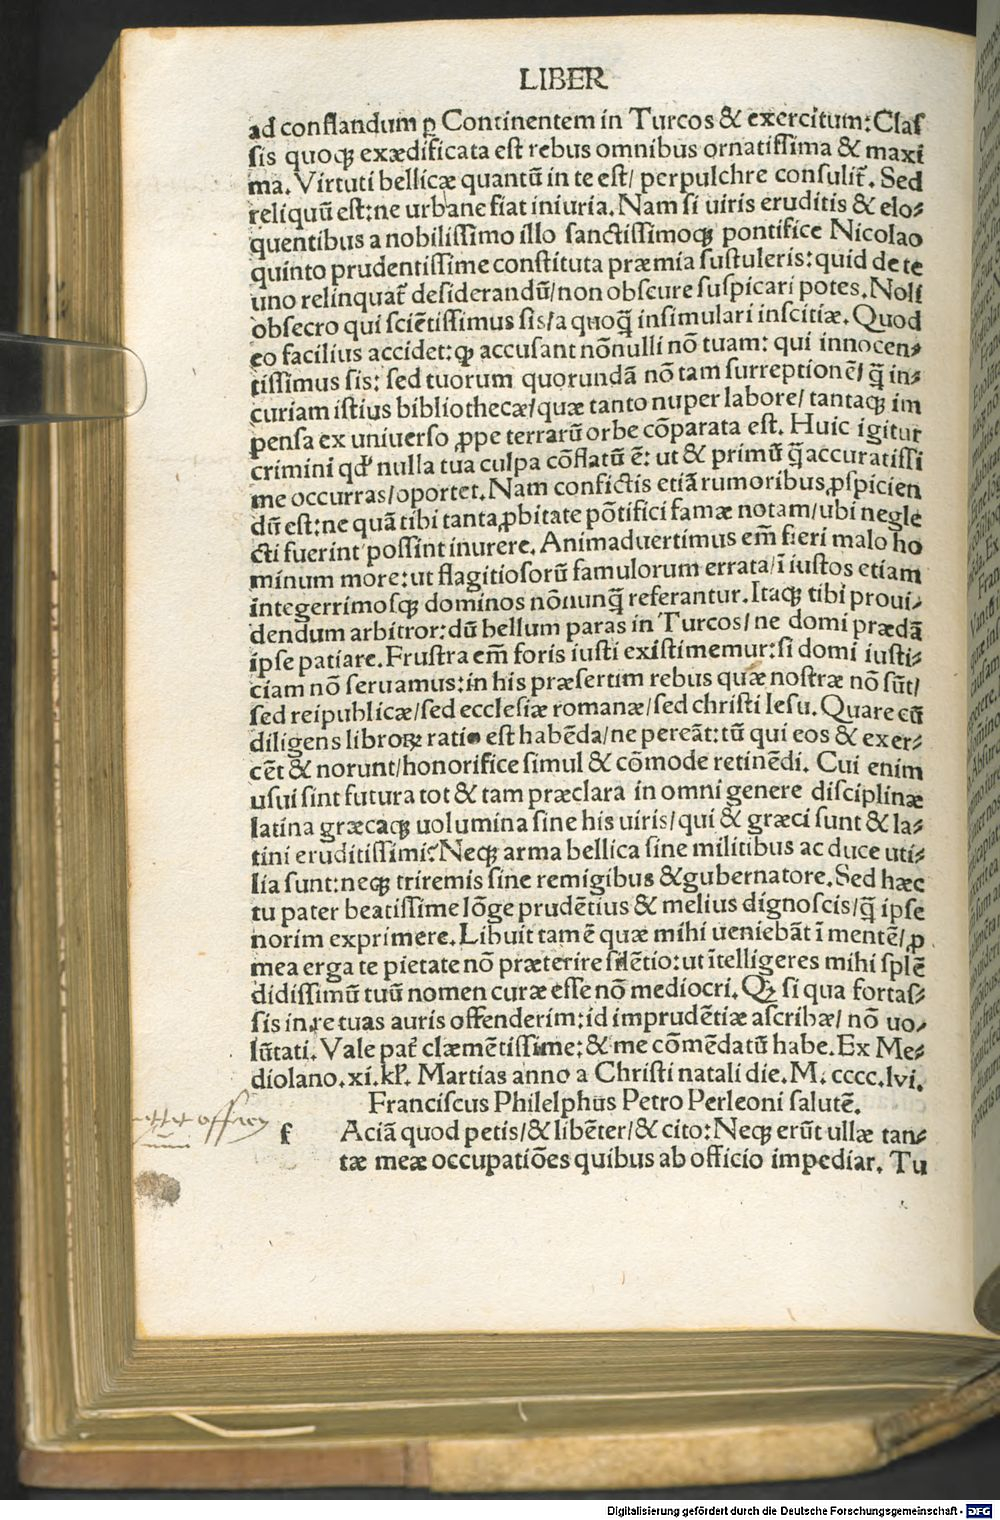 LIBER
ad conflandum ꝑ Continentem in Turcos & exercitum: Claſ
ſis quoqꝫ exædificata eſt rebus omnibus ornatiſſima & maxi
ma. Virtuti bellicæ quantū in te eſt/ perpulchre conſulit̃. Sed
reliquū eſt: ne urbane fiat iniuria. Nam ſi uiris eruditis & elo⸗
quentibus a nobiliſſimo illo ſanctiſſimoqꝫ pontifice Nicolao
quinto prudentiſſime conſtituta præmia ſuſtuleris: quid de te
uno relinquat̃ deſiderandū/ non obſcure ſuſpicari potes. Noli
obſecro qui ſciētiſſimus ſis/ a quoq̄ inſimulari inſcitiæ. Quod
eo facilius accidet: ꝙ accuſant nōnulli nō tuam: qui innocen⸗
tiſſimus ſis: ſed tuorum quorundā nō tam ſurreptionē/ q̄ in⸗
curiam iſtius bibliothecæ/ quæ tanto nuper labore/ tantaqꝫ im
penſa ex uniuerſo ꝓpe terrarū orbe cōparata eſt. Huic igitur
crimini qđ nulla tua culpa cōflatū ē: ut & primū q̄ accuratiſſi
me occurras/ oportet. Nam confictis etiā rumoribus ꝓſpicien
dū eſt: ne quā tibi tanta ꝓbitate pōtifici famæ notam/ ubi negle
cti fuerint poſſint inurere. Animaduertimus em̄ fieri malo ho
minum more: ut flagitioſorū famulorum errata/ ī iuſtos etiam
integerrimoſqꝫ dominos nōnunq̄ referantur. Itaqꝫ tibi proui⸗
dendum arbitror: dū bellum paras in Turcos/ ne domi prædā
ipſe patiare. Fruſtra em̄ foris iuſti exiſtimemur: ſi domi iuſti⸗
ciam nō ſeruamus: in his præſertim rebus quæ noſtræ nō ſūt/
ſed reipublicæ/ ſed eccleſiæ romanæ/ ſed chriſti Ieſu. Quare cū
diligens libroꝝ ratio eſt habēda/ ne pereāt: tū qui eos & exer⸗
cēt & norunt/ honorifice ſimul & cōmode retinēdi. Cui enim
uſui ſint futura tot & tam præclara in omni genere diſciplinæ
latina græcaqꝫ uolumina ſine his uiris/ qui & græci ſunt & la⸗
tini eruditiſſimi? Neqꝫ arma bellica ſine militibus ac duce uti⸗
lia ſunt: neqꝫ triremis ſine remigibus & gubernatore. Sed hæc
tu pater beatiſſime lōge prudētius & melius dignoſcis/ q̄ ipſe
norim exprimere. Libuit tamē quæ mihi ueniebāt ī mentē/ ꝓ
mea erga te pietate nō præterire ſilētio: ut ītelligeres mihi ſplē
didiſſimū tuū nomen curæ eſſe nō mediocri. Qꝫ ſi qua fortaſ⸗
ſis in re tuas auris offenderim: id imprudētiæ aſcribæ/ nō uo⸗
lūtati. Vale pat̃ clæmētiſſime: & me cōmēdatū habe. Ex Me⸗
diolano. xi. kl̓. Martias anno a Chriſti natali die. M. cccc. lvi.
Franciſcus Philelphus Petro Perleoni ſalutē.
f Aciā quod petis/ & libēter/ & cito: Neqꝫ erūt ullæ tan⸗
tæ meæ occupatiōes quibus ab officio impediar. Tu
Digitalisierung gefördert durch die Deutsche Forschungsgemeinschaft - DFG